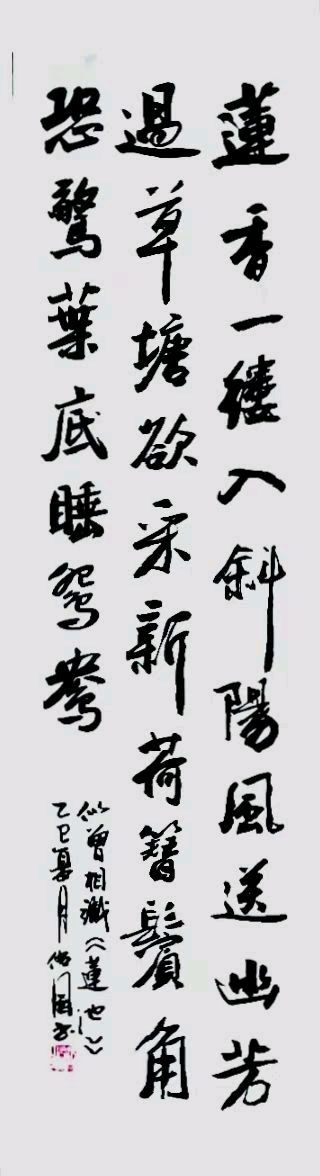 蓮香一縷入斜陽風送幽芳
過草塘欲采新荷簪鬢角
恐驚葉底睡鴛鴦
似曾相識《蓮池》
乙巳夏月